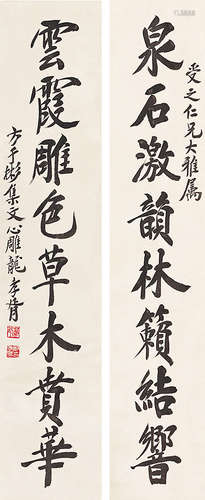 泉石激韻林籟結響
受之仁兄大雅属
雲霞雕色草木賁華
方于彬集文心雕龍